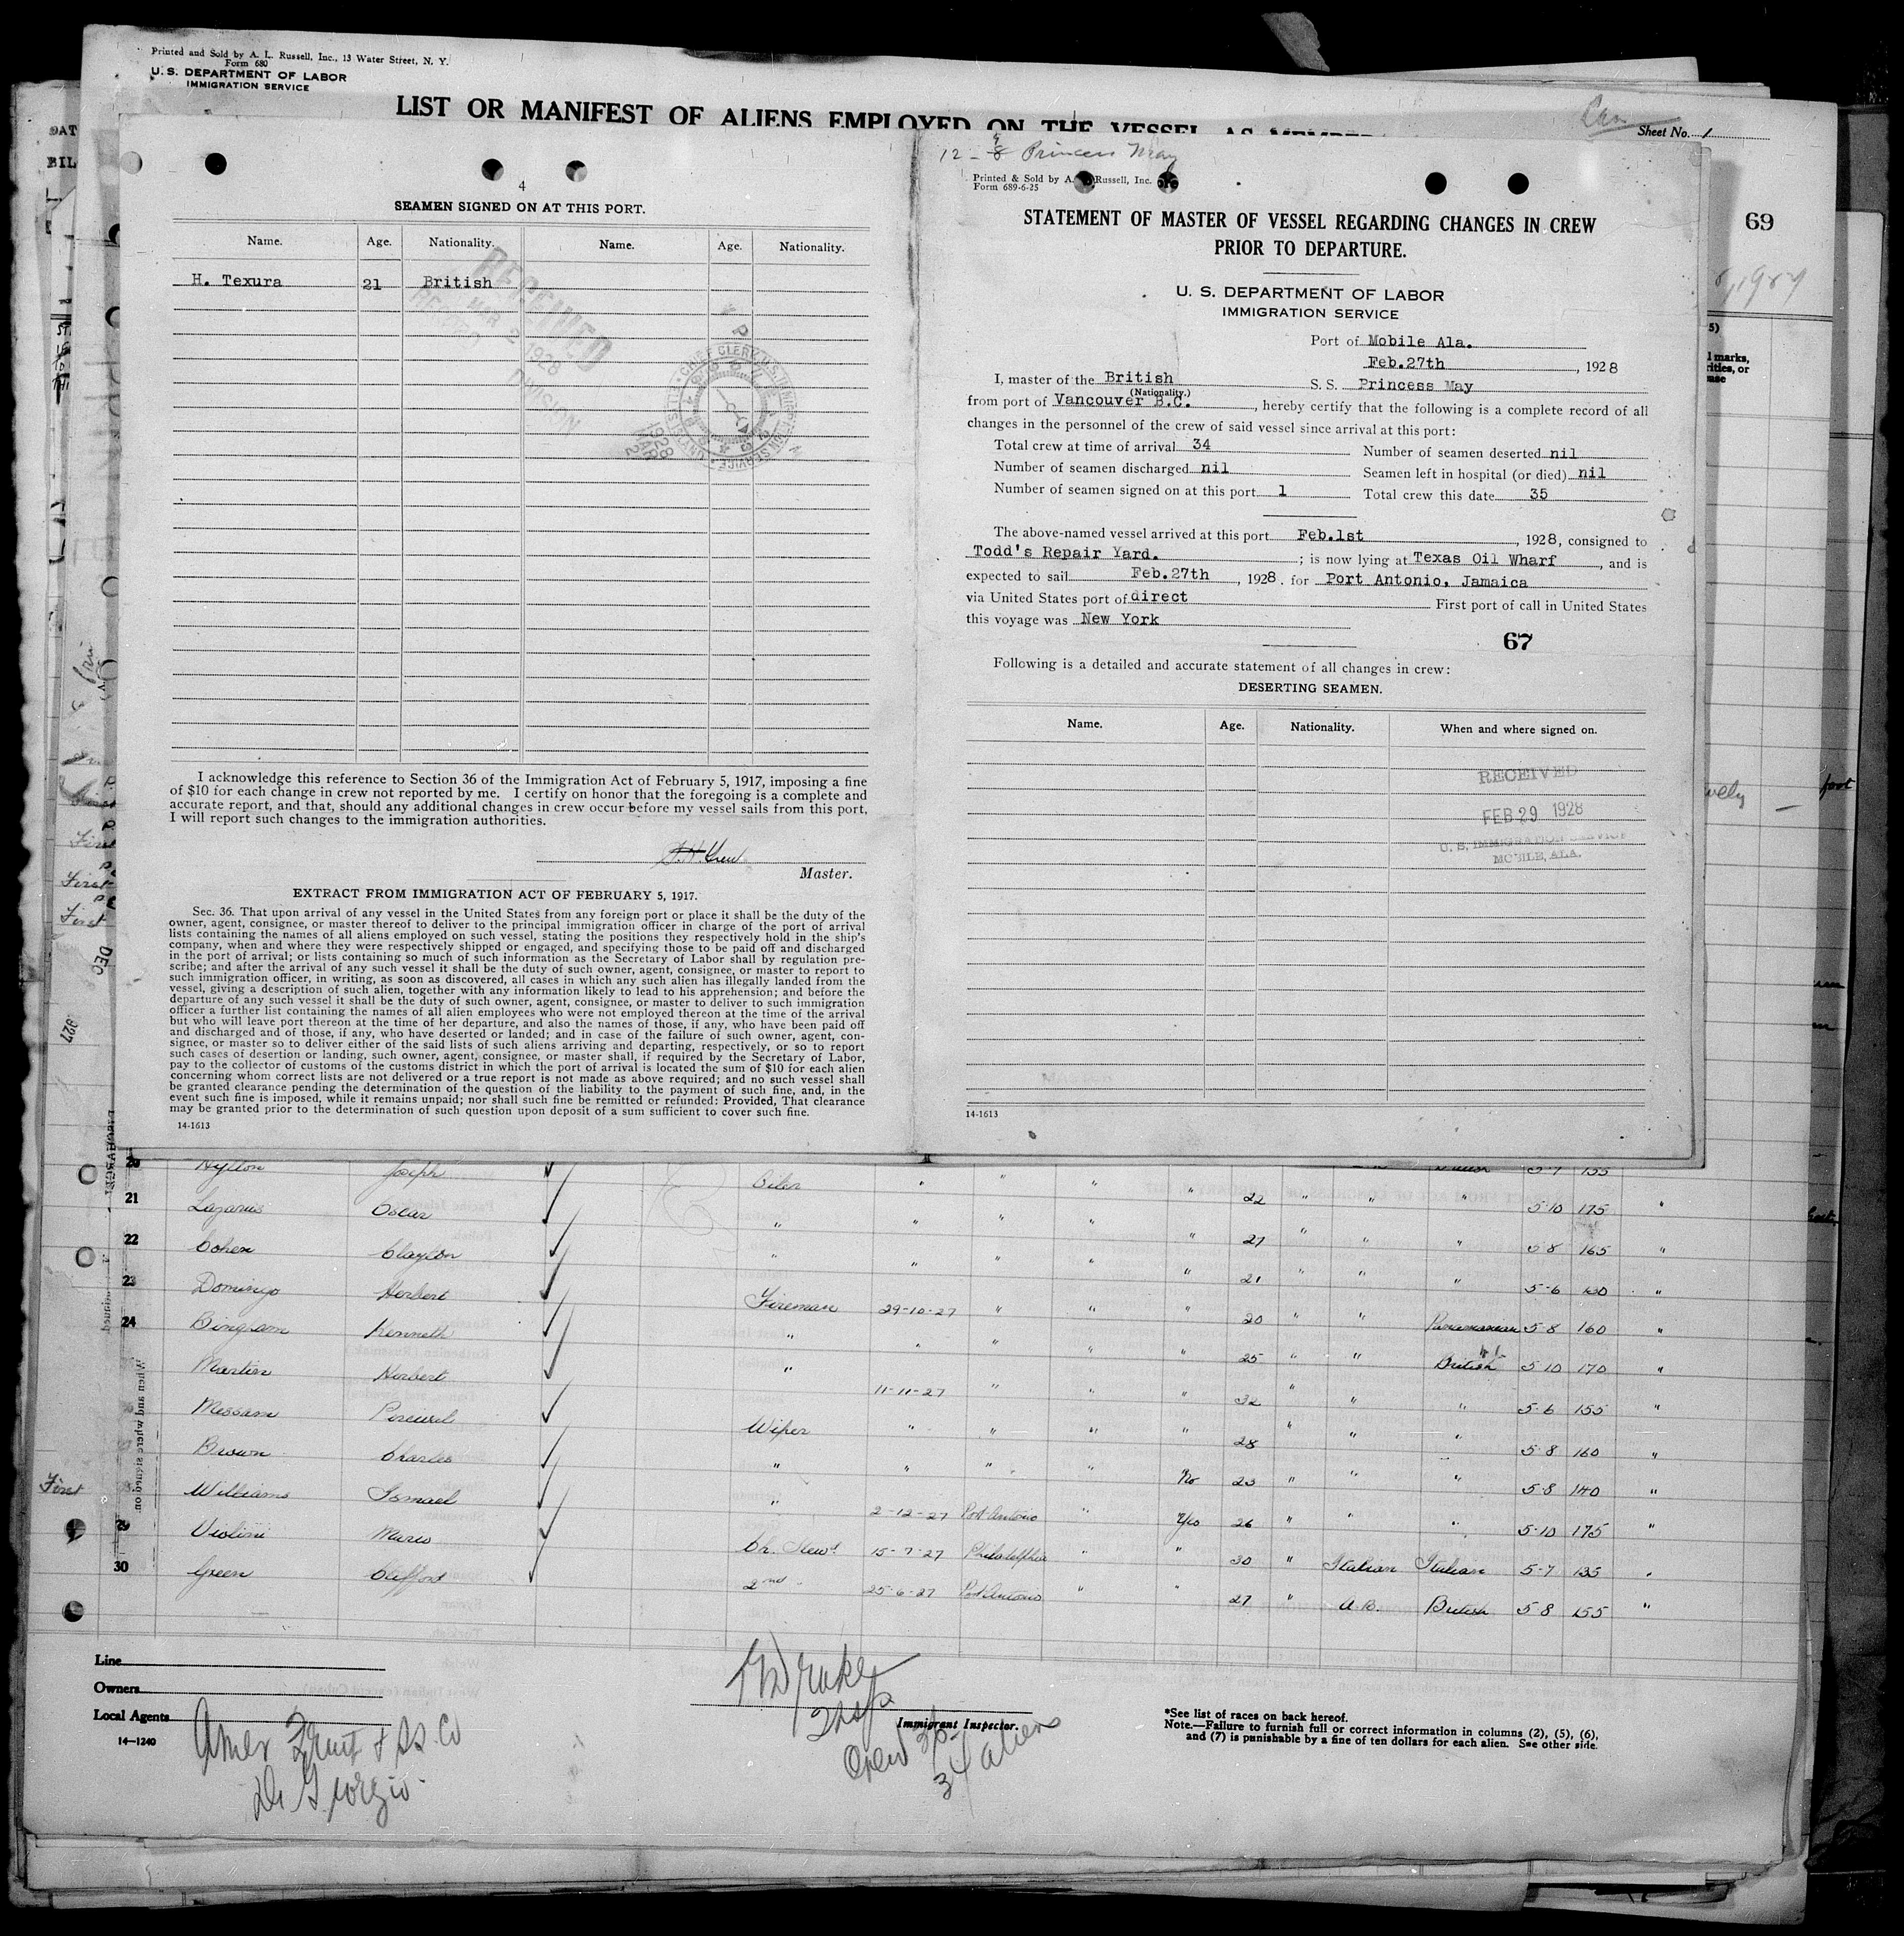 Printed and Sold by A. L. Russell, Inc., 13 Water Street, N. Y.
Form 680
U. S. DEPARTMENT OF LABOR
IMMIGRATION SERVICE
LIST OR MANIFEST OF ALIENS EMPLOYED ON THE VESSEL AS
Sheet No. 1
69
4
SEAMEN SIGNED ON AT THIS PORT.
Name. Age. Nationality. Name. Age. Nationality.
H. Texura 21 British
RECEIVED
MAR 2 1928
DIVISION
I acknowledge this reference to Section 36 of the Immigration Act of February 5, 1917, imposing a fine
of $10 for each change in crew not reported by me. I certify on honor that the foregoing is a complete and
accurate report, and that, should any additional changes in crew occur before my vessel sails from this port,
I will report such changes to the immigration authorities.
Master.
EXTRACT FROM IMMIGRATION ACT OF FEBRUARY 5, 1917.
Sec. 36. That upon arrival of any vessel in the United States from any foreign port or place it shall be the duty of the
owner, agent, consignee, or master thereof to deliver to the principal immigration officer in charge of the port of arrival
lists containing the names of all aliens employed on such vessel, stating the positions they respectively hold in the ship's
company, when and where they were respectively shipped or engaged, and specifying those to be paid off and discharged
in the port of arrival; or lists containing so much of such information as the Secretary of Labor shall by regulation pre-
scribe; and after the arrival of any such vessel it shall be the duty of such owner, agent, consignee, or master to report to
such immigration officer, in writing, as soon as discovered, all cases in which any such alien has illegally landed from the
vessel, giving a description of such alien, together with any information likely to lead to his apprehension; and before the
departure of any such vessel it shall be the duty of such owner, agent, consignee, or master to deliver to such immigration
officer a further list containing the names of all alien employees who were not employed thereon at the time of the arrival
but who will leave port thereon at the time of her departure, and also the names of those, if any, who have been paid off
and discharged and of those, if any, who have deserted or landed; and in case of the failure of such owner, agent, con-
signee, or master so to deliver either of the said lists of such aliens arriving and departing, respectively, or so to report
such cases of desertion or landing, such owner, agent, consignee, or master shall, if required by the Secretary of Labor,
pay to the collector of customs of the customs district in which the port of arrival is located the sum of $10 for each alien
concerning whom correct lists are not delivered or a true report is not made as above required; and no such vessel shall
be granted clearance pending the determination of the question of the liability to the payment of such fine, and, in the
event such fine is imposed, while it remains unpaid; nor shall such fine be remitted or refunded: Provided, That clearance
may be granted prior to the determination of such question upon deposit of a sum sufficient to cover such fine.
14-1613
12- Princess May
Printed & Sold by A. Russell, Inc.
Form 689-6-25
STATEMENT OF MASTER OF VESSEL REGARDING CHANGES IN CREW
PRIOR TO DEPARTURE.
U. S. DEPARTMENT OF LABOR
IMMIGRATION SERVICE
Port of Mobile Ala.
Feb.27th, 1928
I, master of the British S. S. Princess May
(Nationality.)
from port of Vancouver B.C., hereby certify that the following is a complete record of all
changes in the personnel of the crew of said vessel since arrival at this port:
Total crew at time of arrival 34 Number of seamen deserted nil
Number of seamen discharged nil Seamen left in hospital (or died) nil
Number of seamen signed on at this port 1 Total crew this date 35
The above-named vessel arrived at this port Feb.1st, 1928, consigned to
Todd's Repair Yard. ; is now lying at Texas Oil Wharf, and is
expected to sail Feb.27th, 1928. for Port Antonio, Jamaica
via United States port of direct First port of call in United States
this voyage was New York
67
Following is a detailed and accurate statement of all changes in crew:
DESERTING SEAMEN.
Name. Age. Nationality. When and where signed on.
RECEIVED
FEB 29 1928
U. S. IMMIGRATION SERVICE
MOBILE, ALA.
14-1613
20 Hylton Joseph Oiler " " " " 22 " " " 5-7 155
21 Lazarus Oscar " " " " " 27 " " " 5 10 175 "
22 Cohen Clayton " " " " " 21 " " " 5 8 165 "
23 Domingo Herbert Fireman 29-10-27 " " " 20 " " Panamanian 5-6 130 "
24 Bingham Kenneth " " " " " 25 " " British 5-8 160 "
Martin Herbert " 11-11-27 " " " 32 " " " 5 10 170 "
Messam Percival Wiper " " " " 28 " " " 5-6 155 "
Brown Charles " " " " No 23 " " " 5 8 160 "
Williams Ismael " 2-12-27 Port Antonio " Yes 26 " " " 5-8 140 "
29 Violini Mario Ch. Stewd 15-7-27 Philadelphia " " 30 " Italian Italian 5-10 175 "
30 Green Clifford 2nd " 25-6-27 Port Antonio " " 27 " A.B. British 5-7 135
5 8 155 "
First
First
First
DEC
Line
Owners
Local Agents Amer Fruit & SS. Co
Di Giorgio
14-1240
Immigrant Inspector.
Crew 36
34 aliens
*See list of races on back hereof.
Note.—Failure to furnish full or correct information in columns (2), (5), (6),
and (7) is punishable by a fine of ten dollars for each alien. See other side.